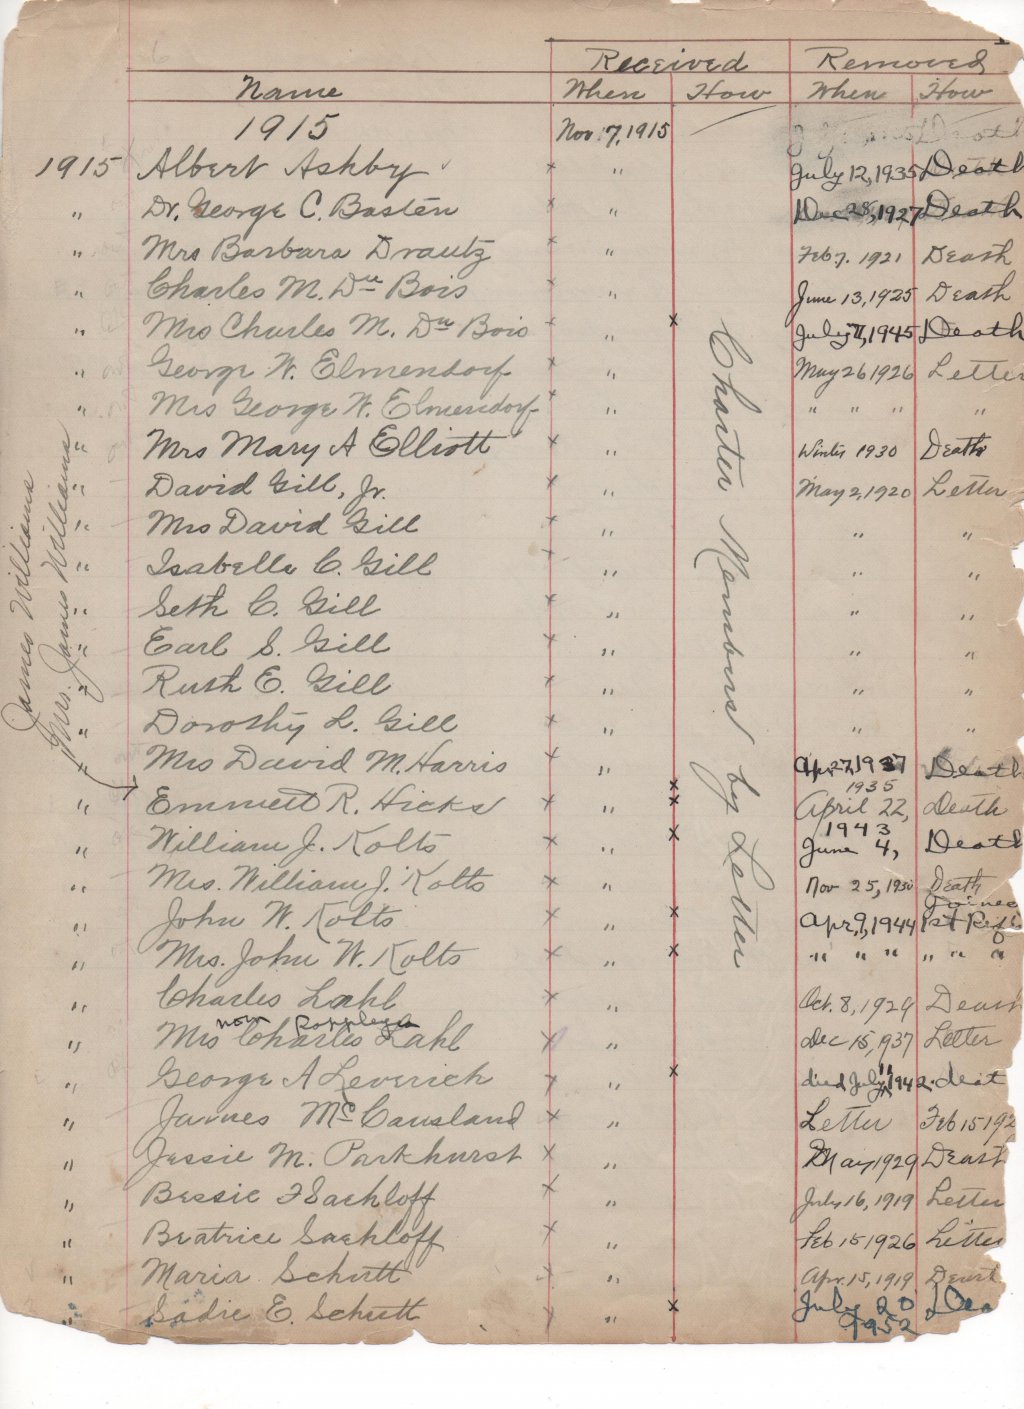 Received Removed
Name When How When How
1915 Nov. 7, 1915
1915 Albert Ashby × " July 12, 1935 Death
" Dr. George C. Basten × " Dec 28, 1927 Death
" Mrs Barbara Drautz × " Feb 7. 1921 Death
" Charles M. Du Bois × " June 13, 1925 Death
" Mrs Charles M. Du Bois × " x July 11, 1945 Death
" George W. Elmendorf × " May 26 1926 Letter
" Mrs George W. Elmendorf × " " " " "
" Mrs Mary A Elliott × " Winter 1930 Death
" David Gill, Jr. × " May 2, 1920 Letter
" Mrs David Gill × " " "
" Isabelle C. Gill × " " "
" Seth C. Gill × " " "
" Earl S. Gill × " " "
" Ruth E. Gill × " " "
" Dorothy L. Gill × " " "
" Mrs David M. Harris × " Apr. 27, 1937 Death
1935
" Emmett R. Hicks × " x April 22, Death
1943
" William J. Kolts × " x June 4, Death
" Mrs. William J. Kolts × " Nov 25, 1930 Death
Joined
" John W. Kolts × " x Apr. 9, 1944 1st Ref
" Mrs. John W. Kolts × " x " " " " " "
" Charles Lahl × " Oct. 8, 1929 Death
now
" Mrs Charles Lahl × " Dec 15, 1937 Letter
" George A Leverich × " x died July 1942. deat
" James McCausland × " Letter Feb 15 192
" Jessie M. Parkhurst × " May 1929 Death
" Bessie F Sachloff × " July 16, 1919 Letter
" Beatrice Sachloff × " Feb 15 1926 Letter
" Maria Schutt × " Apr. 15, 1919 Death
" Sadie E. Schutt × " x July 20 Dea
1952
Charter Members by Letter
James Williams
Mrs. James Williams